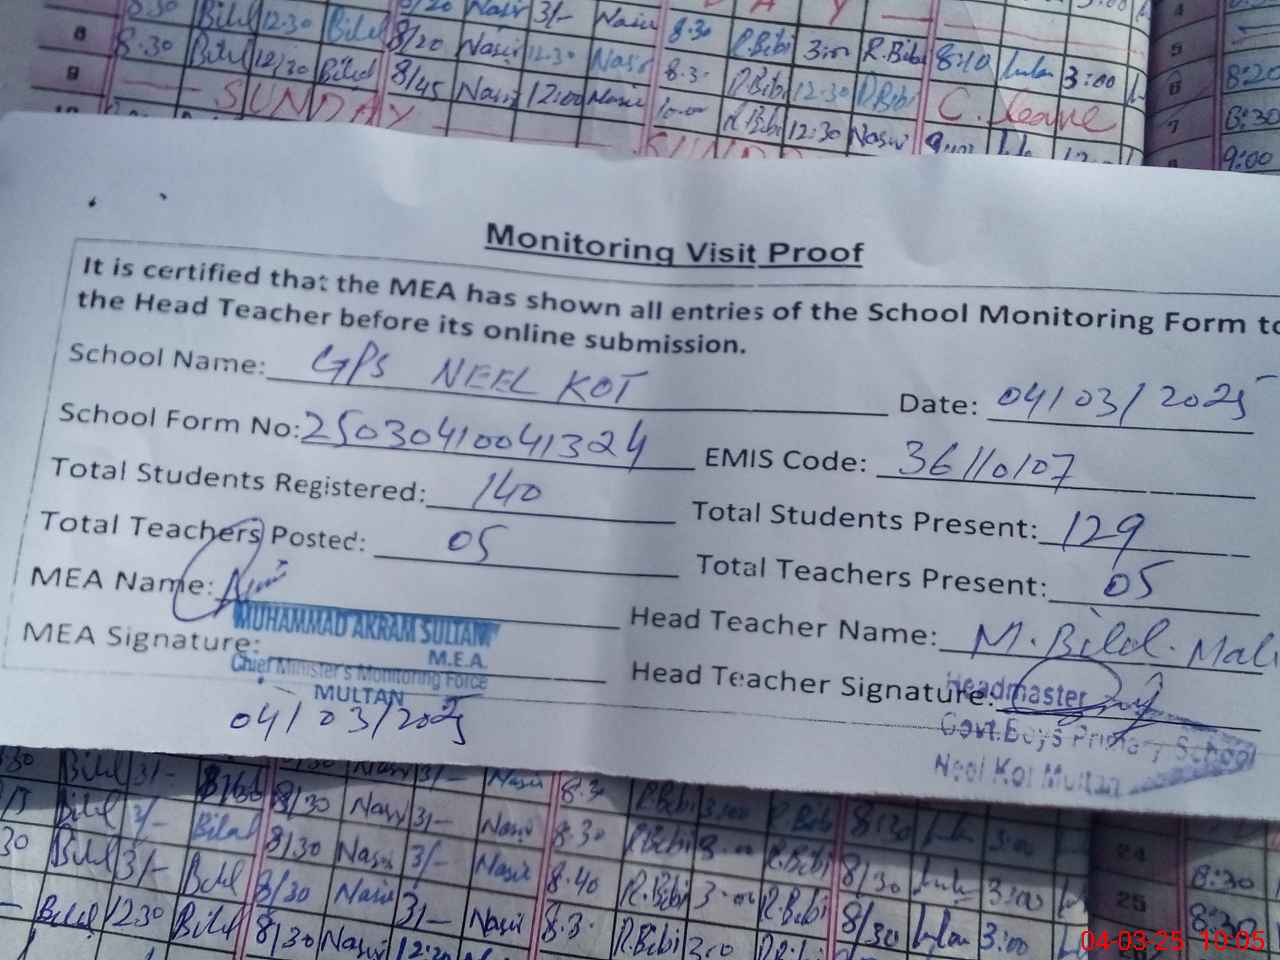 8.30 Bilal 12.30 Bilal 8/20 Nasir 3/- Nasir 8.30 R.Bibi 3:00 R.Bibi 8:10 3:00
8 8.30 Bilal 12/30 Bilal 8/45 Nasir 12:00 Nasir 8.3- R.Bibi 12.30 R.Bibi C. leave
9 SUNDAY 10.00 R.Bibi 12:30 Nasir
4
5
6 8:20
7 8:30
9:00
Monitoring Visit Proof
It is certified that the MEA has shown all entries of the School Monitoring Form to
the Head Teacher before its online submission.
School Name: GPS NEEL KOT
Date: 04/03/2025
School Form No: 25030410041324
EMIS Code: 36110107
Total Students Registered: 140
Total Students Present: 129
Total Teachers Posted: 05
Total Teachers Present: 05
MEA Name:
Head Teacher Name: M. Bilal. Mali
MEA Signature:
MUHAMMAD AKRAM SULTANI
M.E.A.
Chief Minister's Monitoring Force
MULTAN
04/03/2025
Head Teacher Signature:
Headmaster
Govt. Boys Primary School
Neel Kot Multan
Bilal 3/- 8/30 Nasir 3/- Nasir 8.3 R.Bibi 3:00 R.Bibi 8/30 3:00
Bilal 3/- Bilal 8/30 Nasir 3/- Nasir 8.30 R.Bibi R.Bibi 8/30 3:00 24 8:30
30 Bilal 3/- Bilal 8/30 Nasir 3/- Nasir 8.40 R.Bibi 3.00 R.Bibi 8/30 3:00 25 8:30
Bilal 12 30 Bilal 8/30 Nasir 12:30 8.3 R.Bibi
04-03-25 10:05